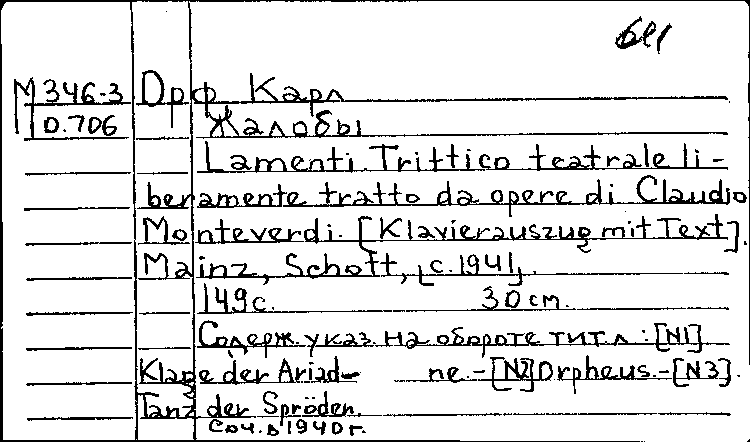 641
М 346-3 Орф Карл
0.706 Жалобы
Lamenti. Trittico teatrale li-
beramente tratto da opere di Claudio
Monteverdi. [Klavierauszug mit Text].
Mainz, Schott, [c.1941].
149с. 30 cm.
Содерж указ на обороте тит л: [N1]
Klage der Ariad- ne.-[N2]Orpheus.-[N3].
Tanz der Spröden.
Соч. в 1940 г.